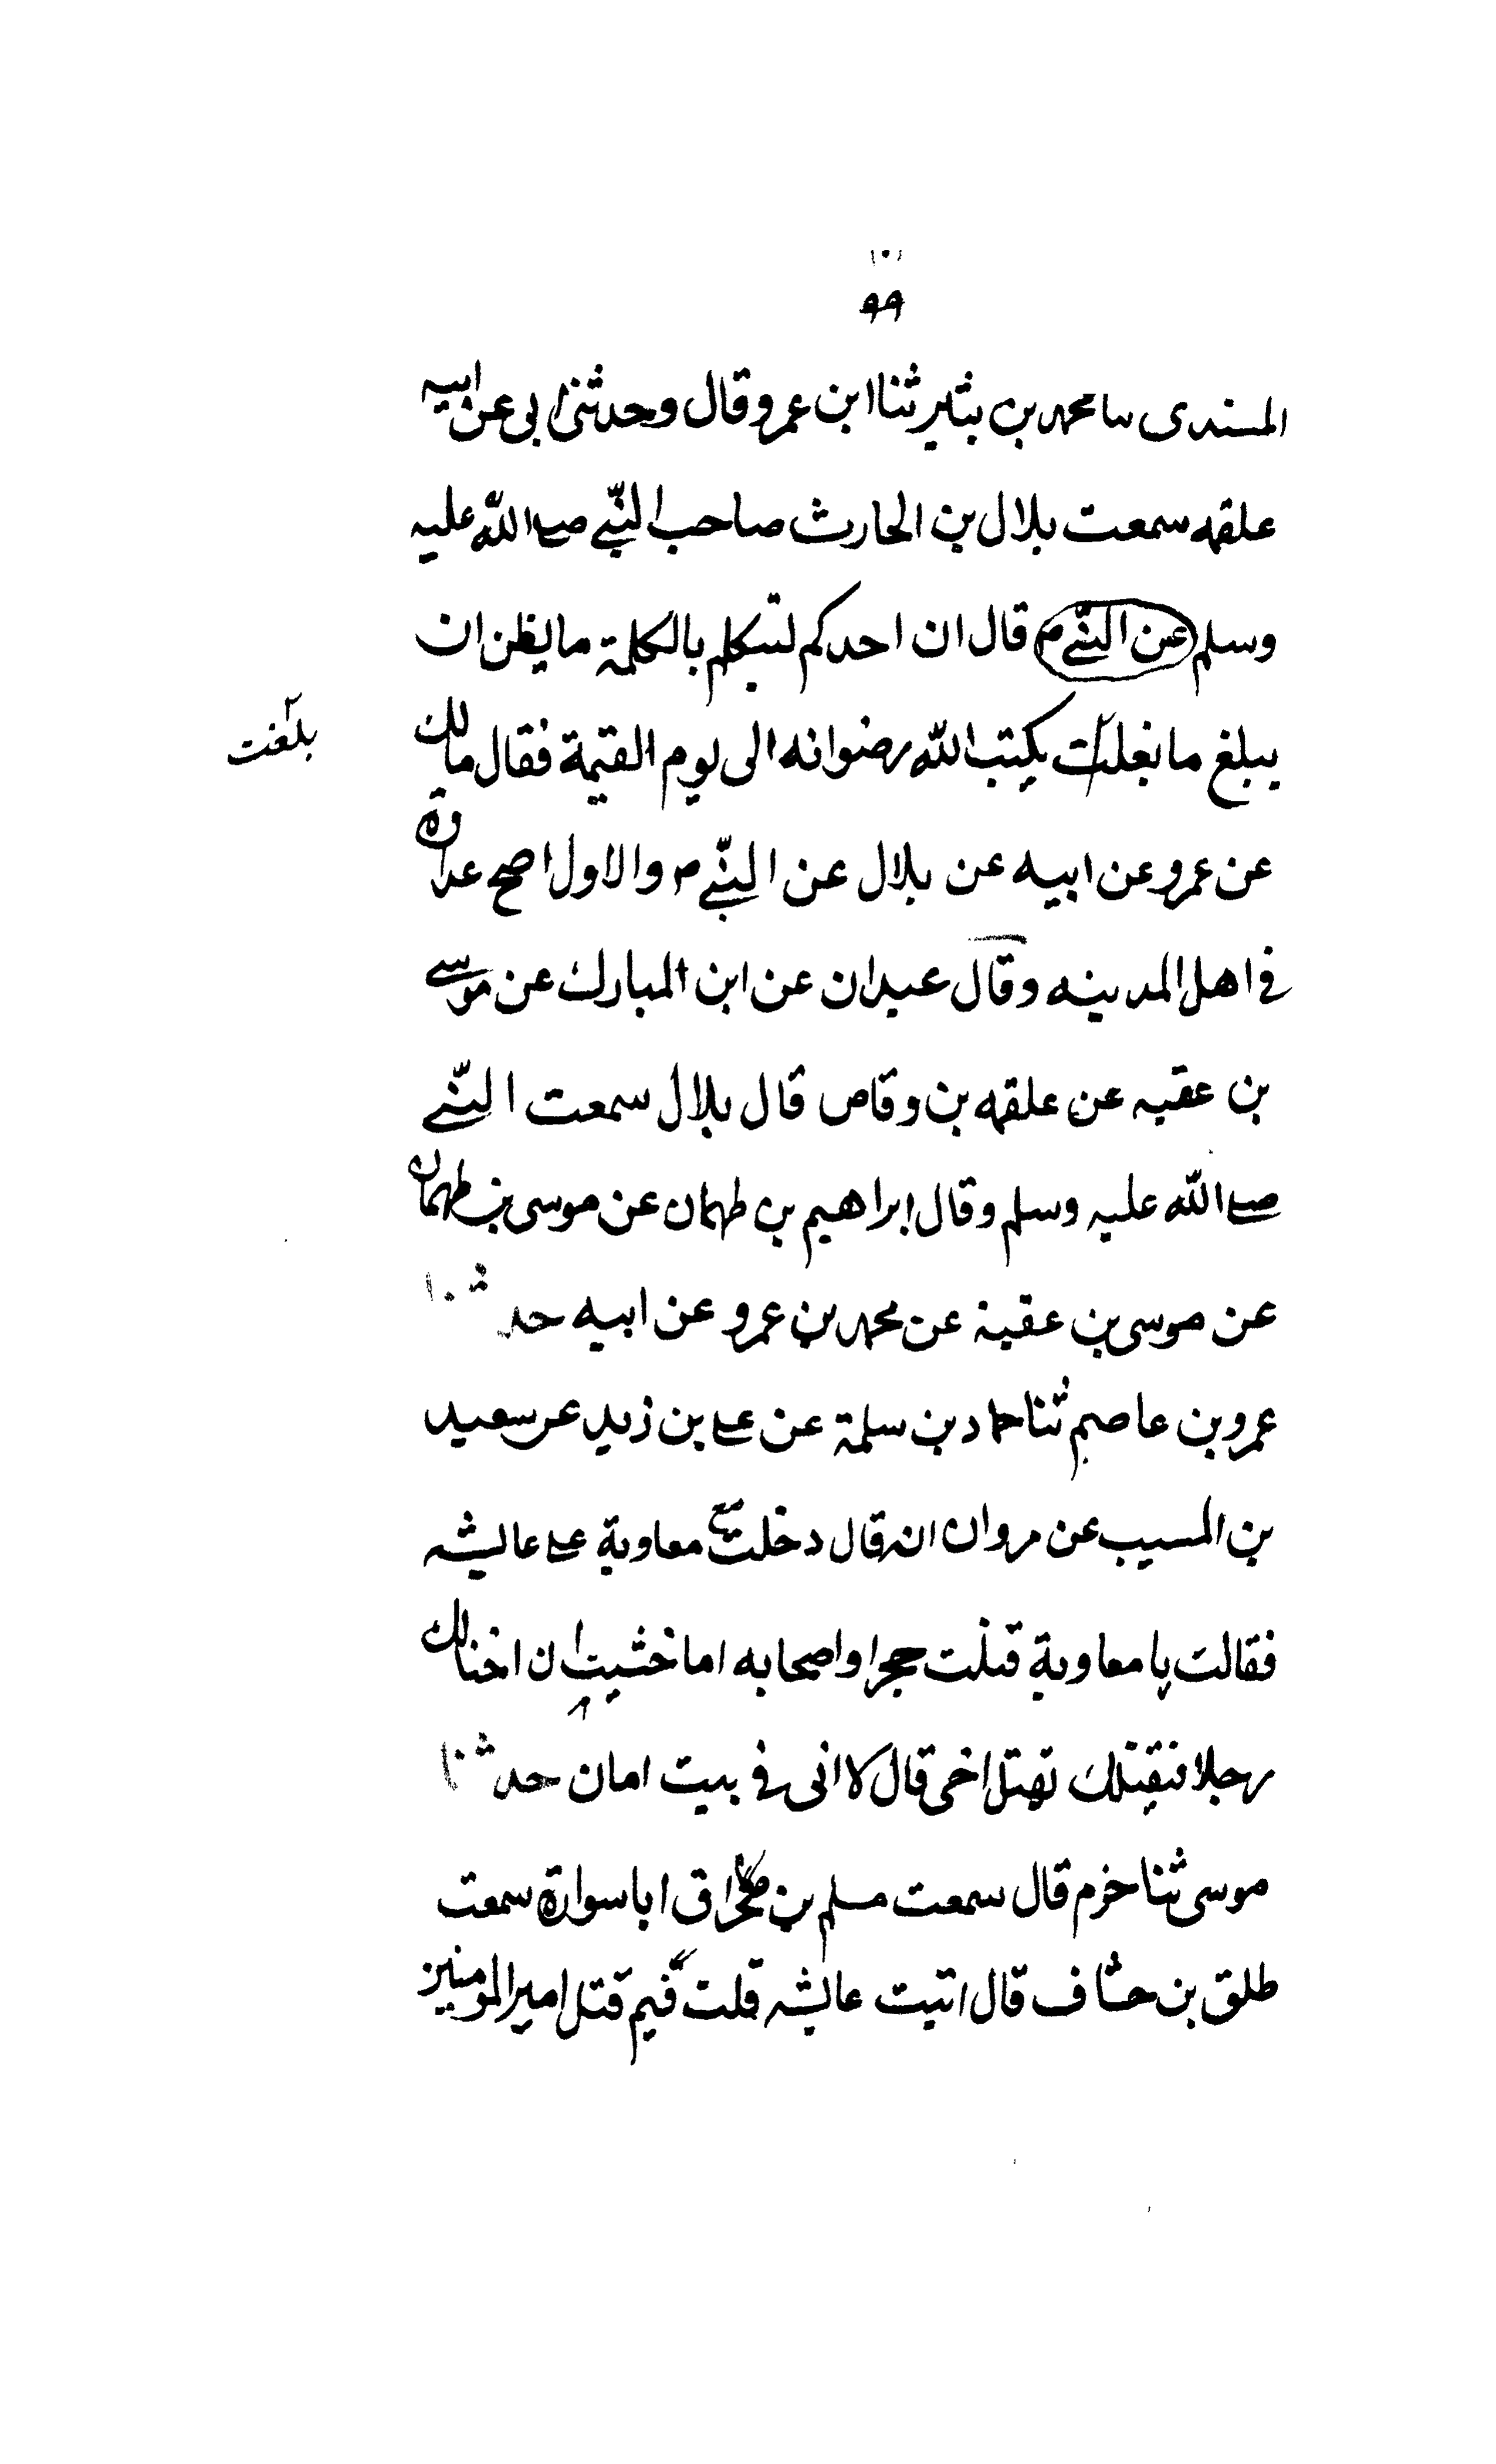 ١٠١
٩٩
المسندى سا محمد بن بشير ثنا ابن عمرو قال وحدثنى ابى عن ابيه
علقمه سمعت بلال بن الحارث صاحب النبي صلى الله عليه
وسلم عن النبي م قال ان احدكم ليتكلم بالكلمة ما يظن ان
يبلغ ما بغلت يكتب الله رضوانه الى يوم القيمة فقال مالك
بلغت
عن عمرو عن ابيه عن بلال عن النبي م والاول اصح عداده
في اهل المدينه وقال عبدان عن ابن المبارك عن موسى
بن عقبه عن علقمه بن وقاص قال بلال سمعت النبي
صلى الله عليه وسلم وقال ابراهيم بن طهمان عن موسى بن طهمان
عن موسى بن عقبة عن محمد بن عمرو عن ابيه حدثنا
عمرو بن عاصم ثنا حماد بن سلمة عن على بن زيد عن سعيد
بن المسيب عن مروان انه قال دخلت مع معاوية على عايشه
فقالت يا معاوية قتلت حجرا واصحابه اما خشيت ان اخبالك
رجلا فيقتلك تقتل اخى قال لا انى في بيت امان حدثنا
موسى ثنا حزم قال سمعت مسلم بن مخراق ابا سوارة سمعت
طلق بن خشاف قال اتيت عايشه قلت فيم قتل امير المومنين